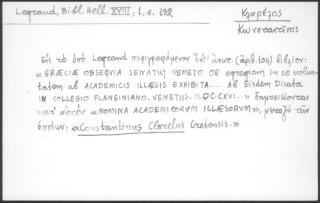 Legrand, Bibl. Hell. XVIII, 1, σ. 192
Κλαρέλος
Κωνσταντῖνος
Εἰς τὸ ὑπὸ Legrand περιγραφόμενον (ἀρ. 104) βιβλίον:
« GRÆCIÆ OBSEQVIA SENATUI VENETO OB egregiam in se volun-
tatem ab ACADEMICIS ILLÆSIS EXHIBITA.... AB Eisdem Dicata
IN COLLEGIO FLANGINIANO. VENETIIS. M.DC.CXVI... » δημοσιεύονται
« NOMINA ACADEMICORVM ILLÆSORVM », μεταξὺ τῶν
ὁποίων: « Constantinus Clarelus Cretensis. »